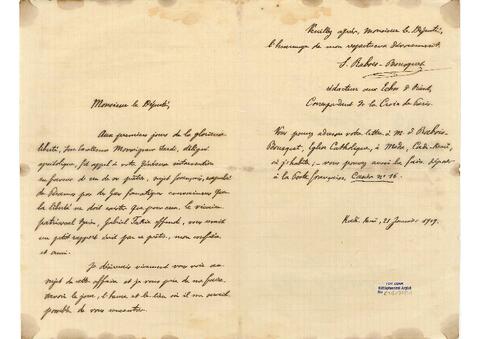 Monsieur le Député,
Aux premiers jours de la glorieuse
liberté, Son Excellence Monseigneur Sardi, délégué
apostolique, fit appel à votre généreuse intervention
en faveur d'un de ses prêtres, sujet français,
par des gens fanatiques convaincus que
la liberté ne doit exister que pour eux. Le vicaire
patriarcal Syrien, Gabriel Takia offensé, vous remit
un petit rapport écrit par ce prêtre, mon confrère
et ami.
Je désirerais vivement vous voir au
sujet de cette affaire et je vous prie de me faire
savoir le jour, l'heure et le lieu où il me serait
possible de vous rencontrer.
Veuillez agréer, Monsieur le Député,
l'hommage de mon respectueux dévouement.
S. Rabois-Bousquet
rédacteur aux Echos d'Orient,
Correspondant de la Croix de Paris.
Vous pouvez adresser votre lettre à M. S. Rabois-
Bousquet, Eglise Catholique, à Moda, Cadi-Keui,
où j'habite; - vous pouvez aussi la faire déposer
à la Poste française, Casier Nº 16.
Kadi-Keui, 25 Janvier 1909.